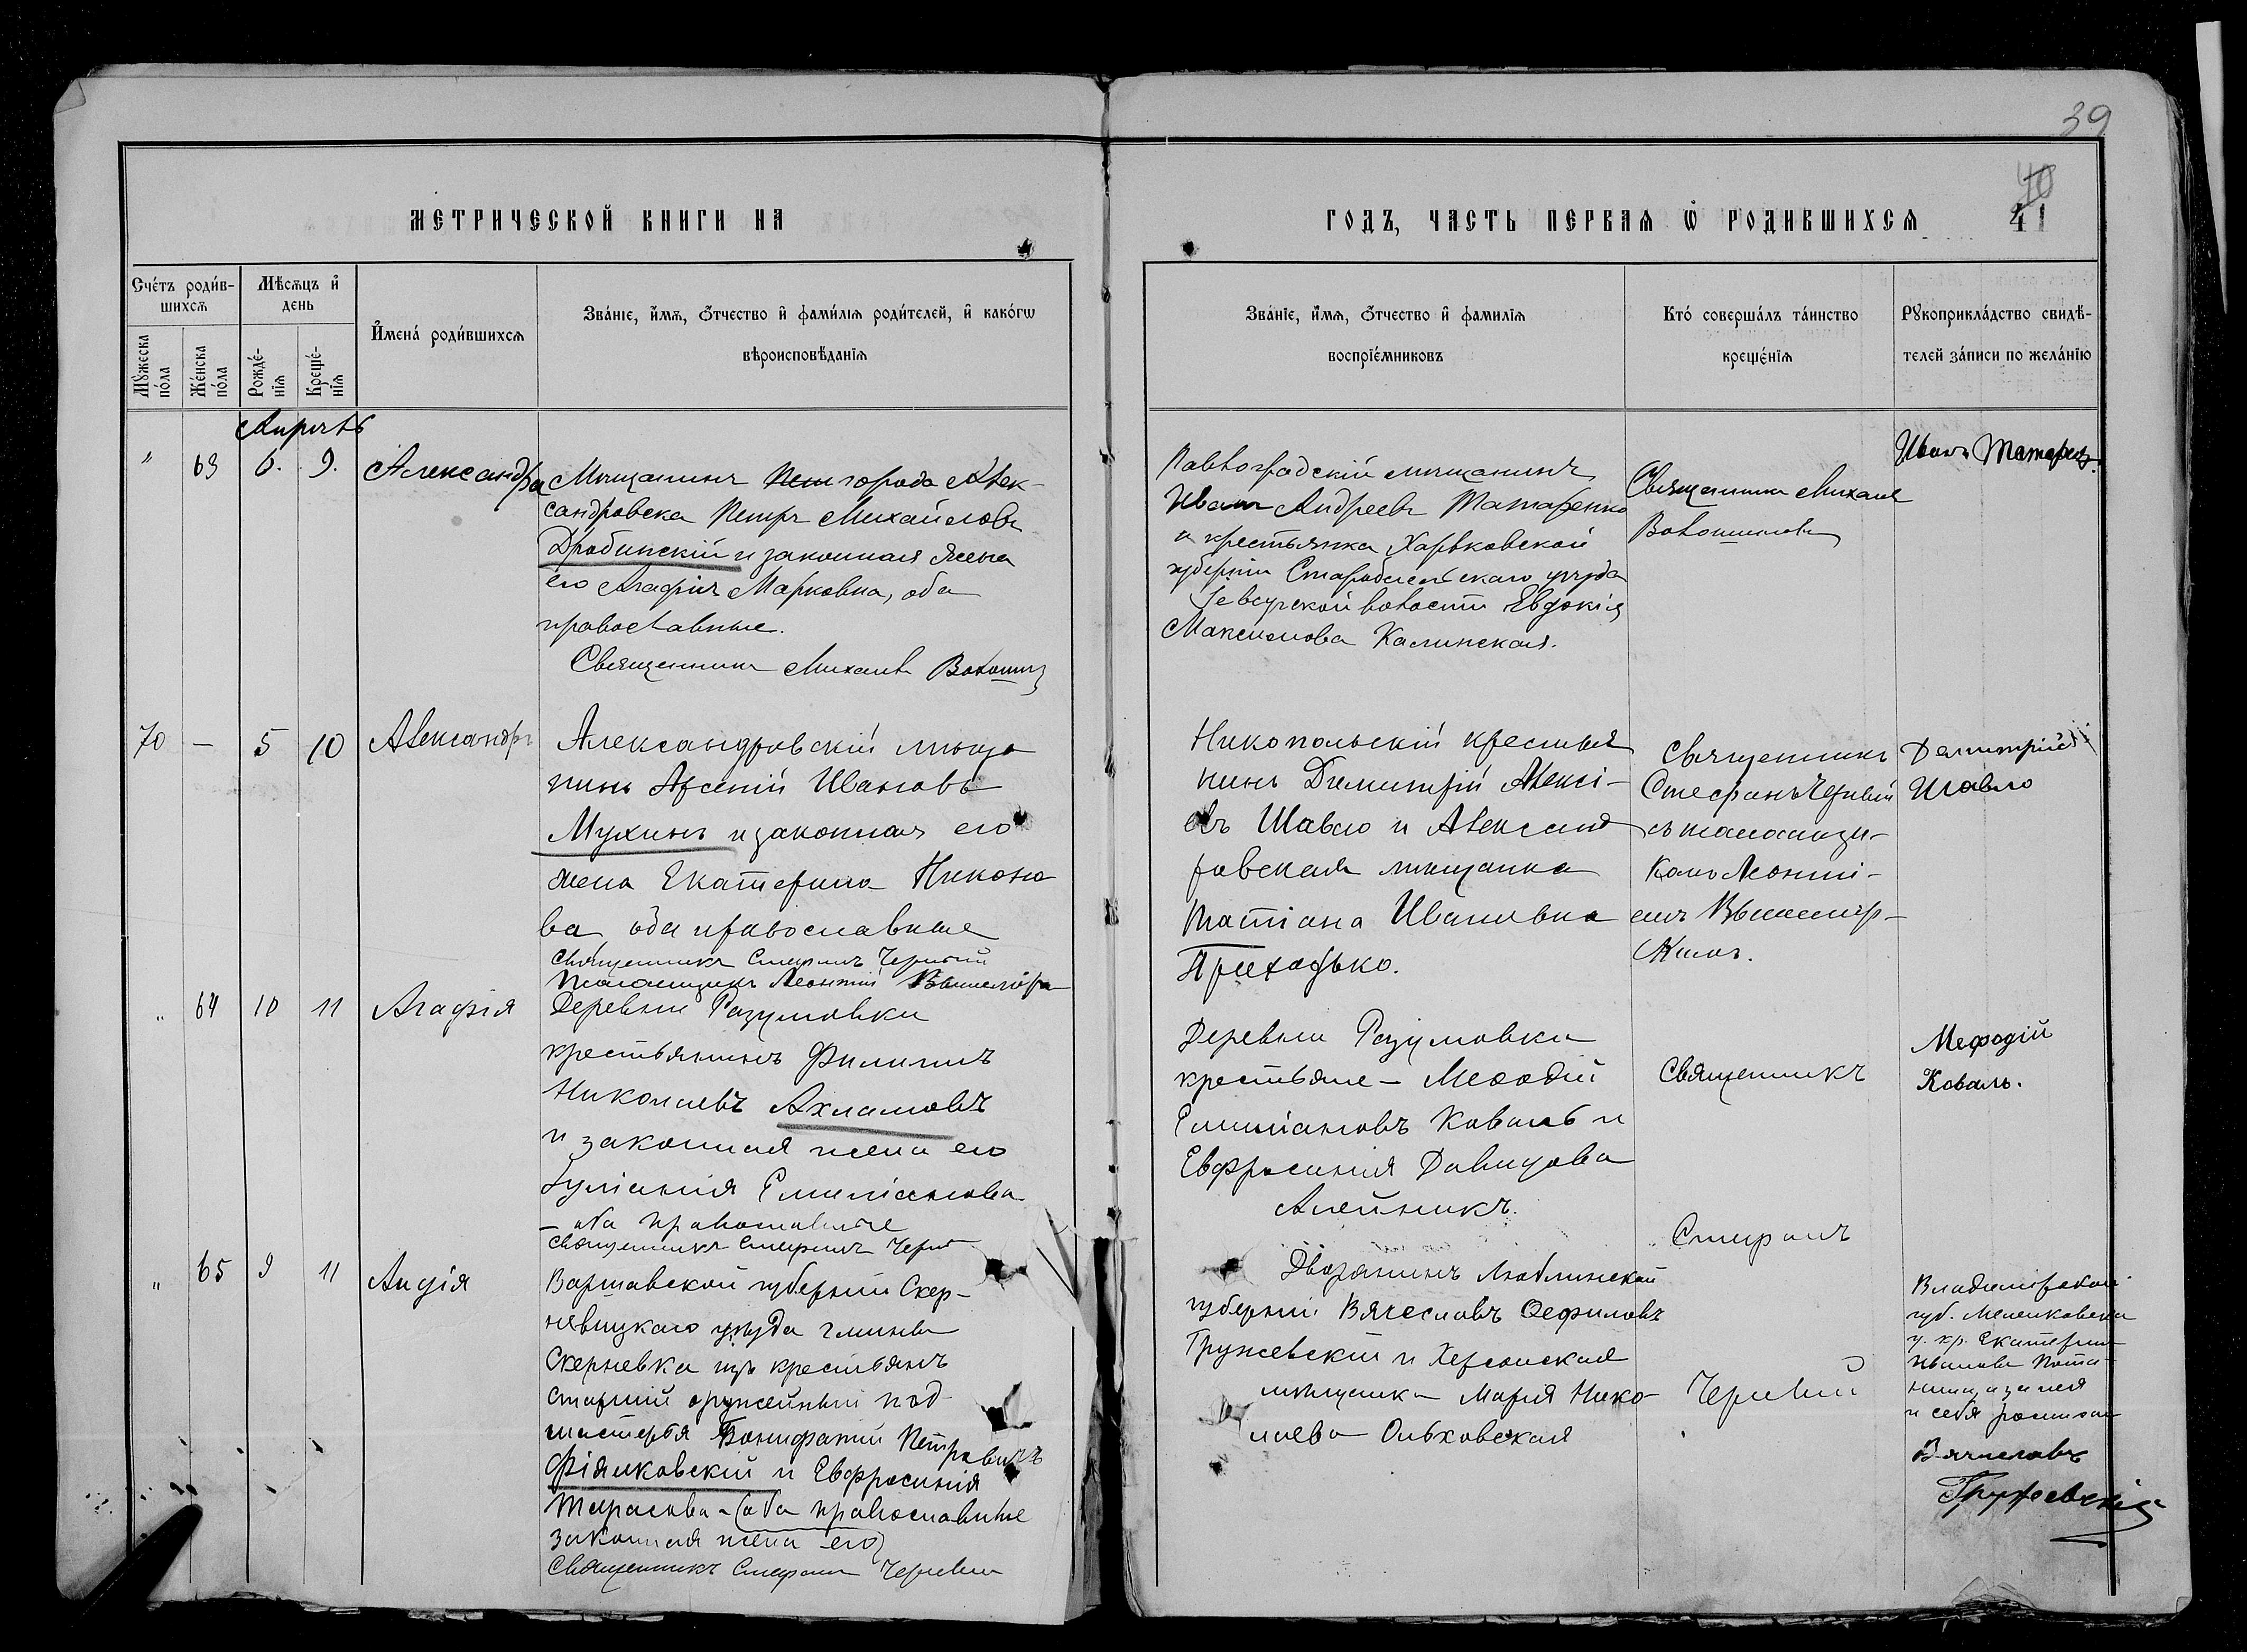 39
40
41
МЕТРИЧЕСКОЙ КНИГИ НА
ГОДЪ, ЧАСТЬ ПЕРВАЯ Ѽ РОДИВШИХСЯ
Счетъ родив-
шихся
Мѣсяцъ и
день
Мужеска
пола
Женска
пола
Рожде-
нія
Креще-
нія
Имена родившихся
Званіе, имя, отчество и фамилія родителей, и какогѡ
вѣроисповѣданія
Званіе, имя, отчество и фамилія
воспріемниковъ
Кто совершалъ таинство
крещенія
Рукоприкладство свидѣ-
телей записи по желанію
Апрель
" 63 6. 9. Александра
Мѣщанинъ города Алек-
сандровска Петръ Михайловъ
Дробинскій и законная жена
его Агафія Марковна, оба
православные.
Священникъ Михаилъ
Павлоградскій мѣщанинъ
Иванъ Андреевъ Татаренко
и крестьянка Харьковской
губерніи Старобельскаго уѣзда
волости Евдокія
Максимова Калинская.
Священникъ Михаил
Иванъ
70 — 5 10 Александръ
Александровскій мѣща
нинъ Арсеній Ивановъ
Мухинъ и законная его
жена Екатерина Никоно
ва оба православные
Священникъ Стефанъ Черный
Псаломщикъ Леонтій
Никопольскій крестья
нинъ Димитрій Алексі-
евъ Шавло и Александ
ровская мѣщанка
Татіана Ивановна
Приходько.
Священникъ
Стефанъ
съ псаломщи-
комъ Леонті-
емъ
Димитрій
Шавло
" 64 10 11 Агафія
Деревни Разумовки
крестьянинъ Филиппъ
Николаевъ Ахламовъ
и законная жена его
Іуліанія Емиліанова
— оба православные
Священникъ Стефанъ
Деревни Разумовки
крестьяне — Меѳодій
Емиліановъ Коваль и
Евфросинія Давидова
Алейникъ.
Священникъ
Мефодій
Коваль.
" 65 9 11 Лидія
Варшавской губерніи Скер-
невицкаго уѣзда гмины
Скерневка изъ крестьянъ
старшій оружейный под
мастерья Бонифатій Петровичъ
Фіялковскій и Евфросинія
Тарасова — (оба православные
законная жена его)
Священникъ Стефанъ
Дворянинъ Люблинской
губерніи Вячеславъ Ѳеѳиловъ
Гружевскій и Херсонская
мѣщанка Марія Нико-
лаева Ольховская
Стефанъ
Владимірской
губ. Меленковска
у. кр. Екатерина
Иванова
за нея
и себя
Вячеславъ
Гружевскій